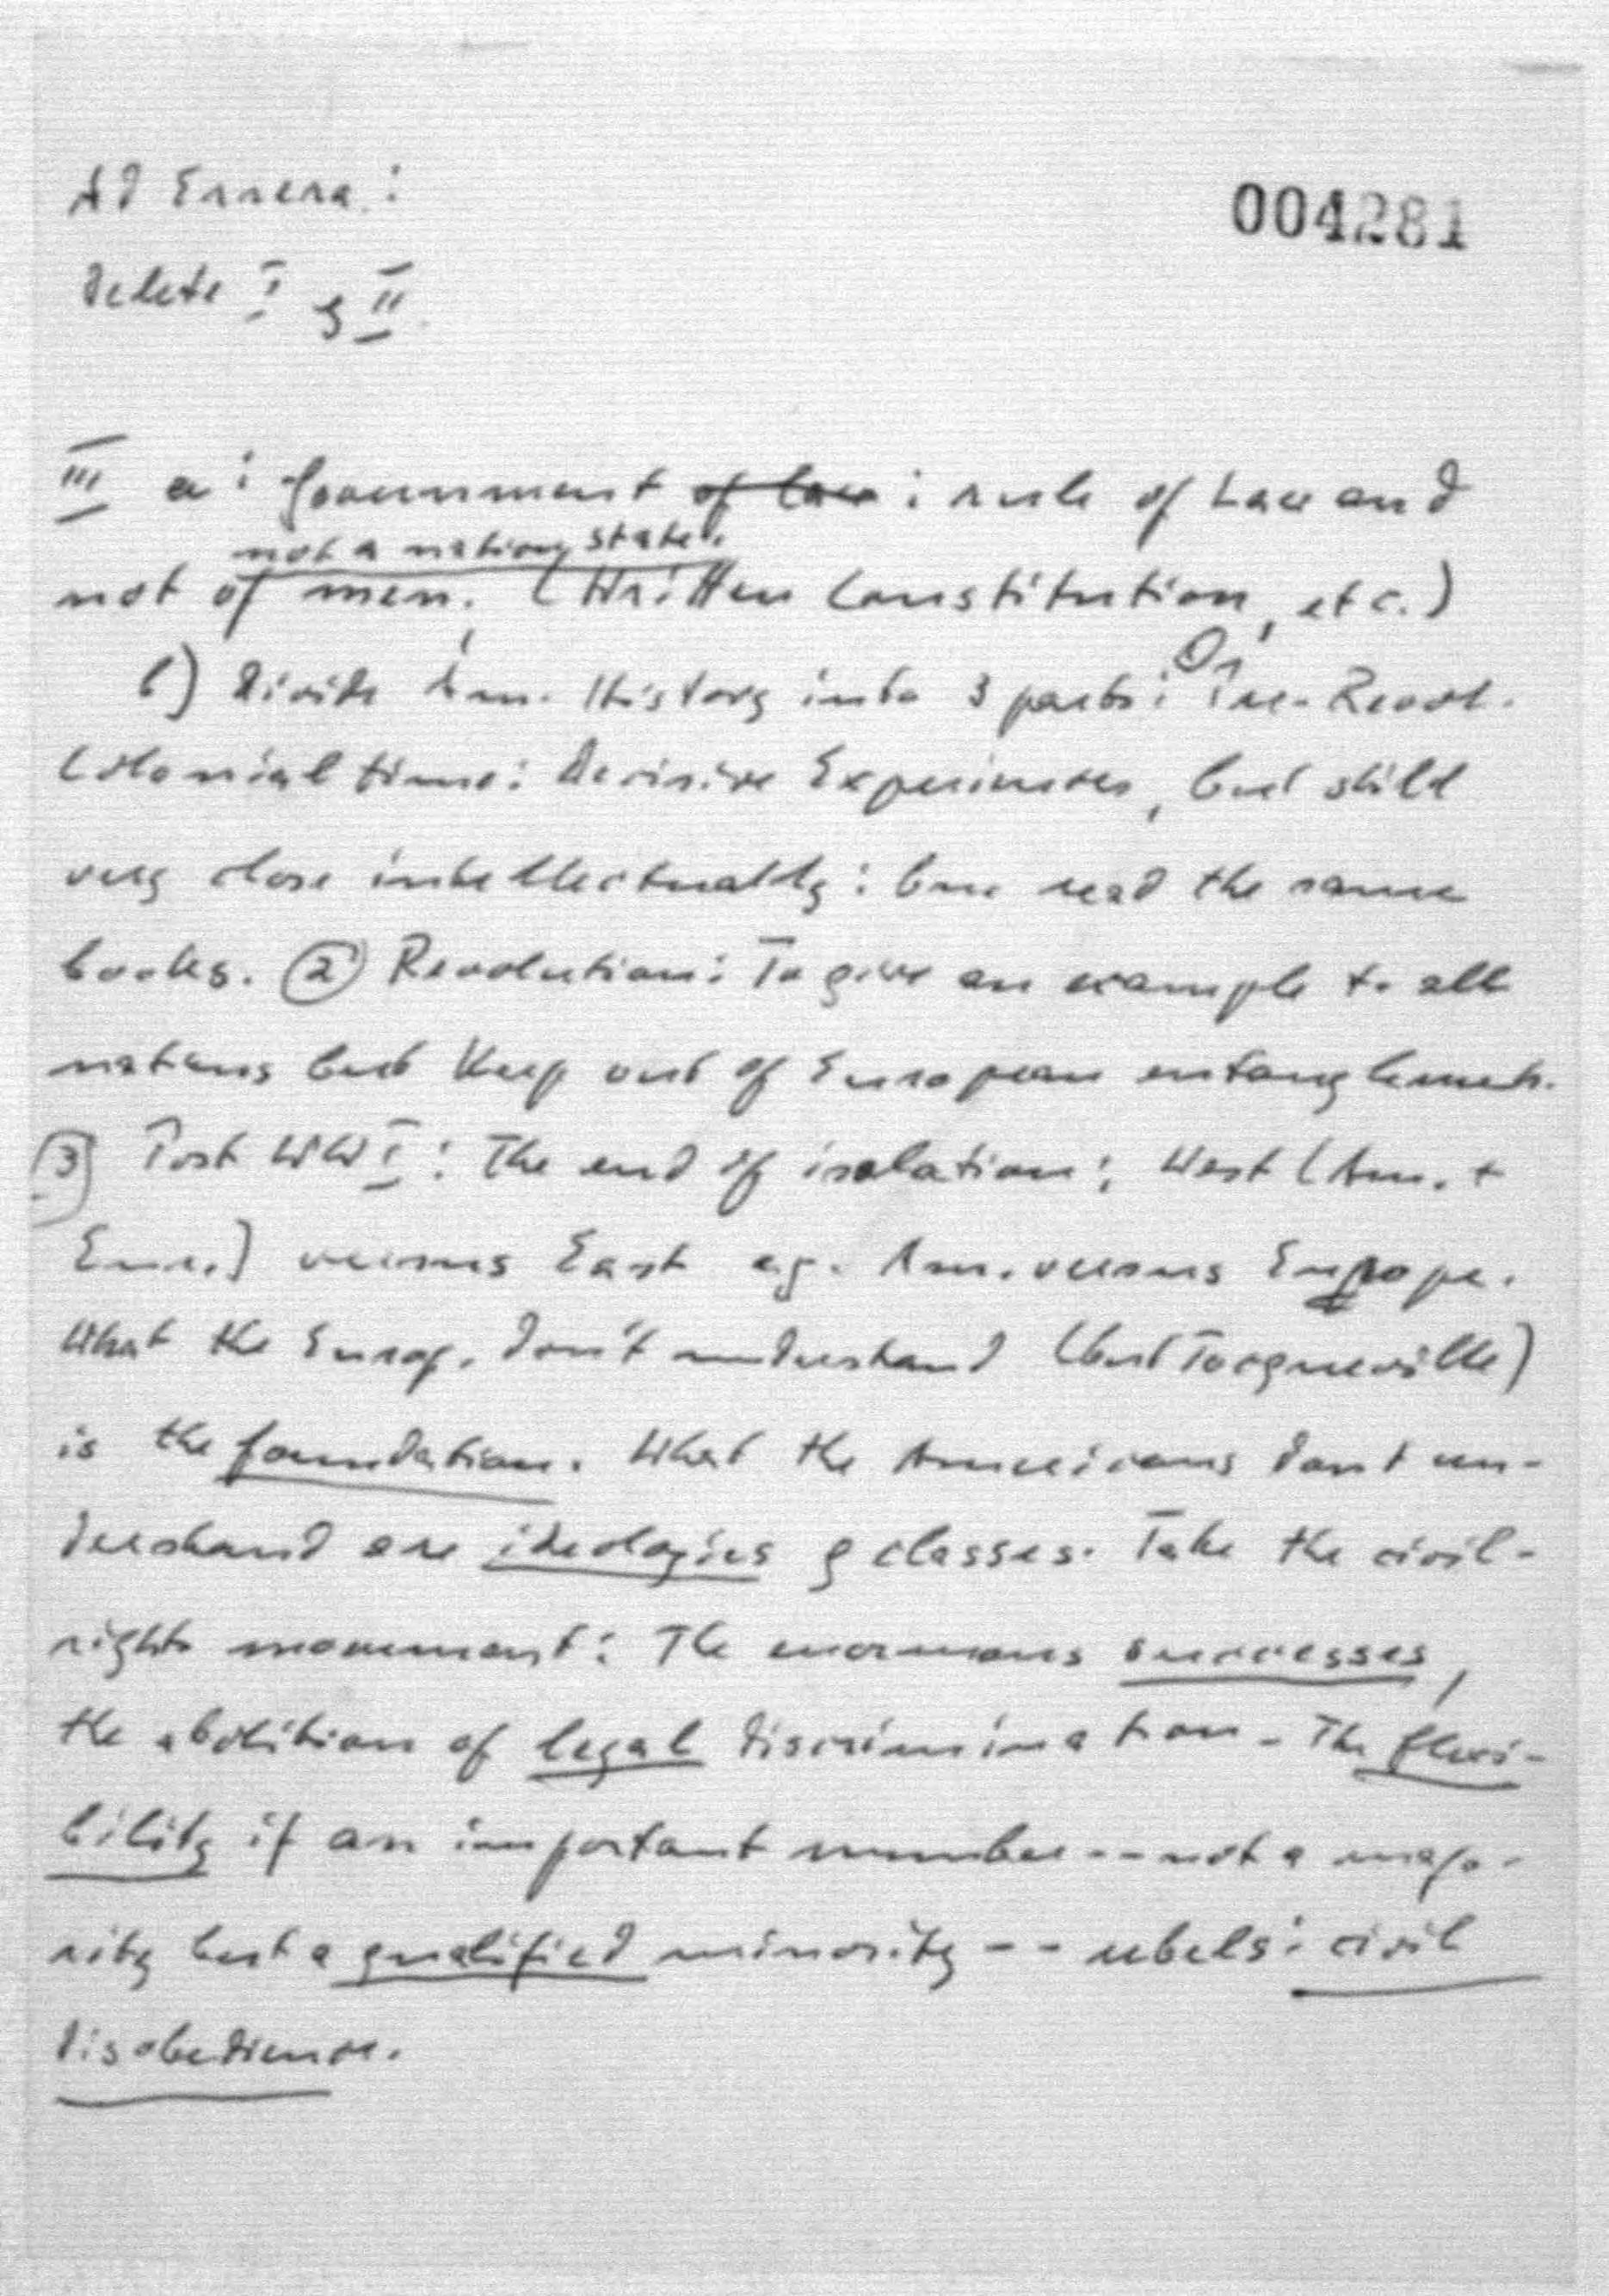 Ad Errera:
004281
Delete I & II.
III a: Government of law: rule of Law and
not a nation state.
not of men. (Written Constitution, etc.)
b) Divide Am. History into 3 parts: ① Pre-Revol.
Colonial time: Decisive Experiences, but still
very close intellectually: read the same
books. ② Revolution: To give an example to all
nations but keep out of European entanglements.
③ Post WW I: The end of isolation: West (Am. +
Eur.) versus East e.g. Am. versus Europe.
What the Europ. don't understand (but Tocqueville)
is the foundation. What the Americans don't un-
derstand are ideologies & classes. Take the civil-
rights movement: The enormous successes,
the abolition of legal discrimination - The flexi-
bility if an important number -- not a majo-
rity but a qualified minority -- rebels: civil
disobedience.